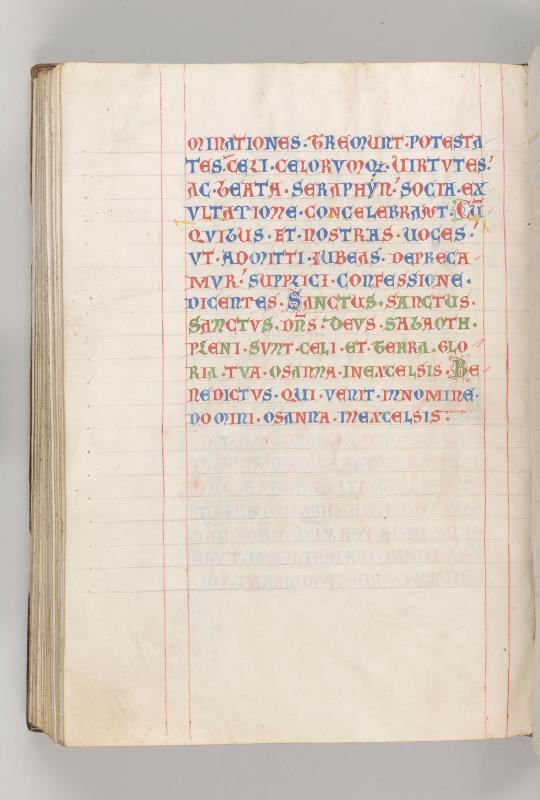 MINATIONES·TREMUNT·POTESTA
TES·CELI·CELORVMQƺ·UIRTVTES·
AC·BEATA·SERAPHYN·SOCIA·EX
VLTATIONE·CONCELEBRANT·CŪ
QVIBUS·ET·NOSTRAS·UOCES·
VT·ADMITTI·IUBEAS·DEPRECA
MVR·SUPPLICI·CONFESSIONE·
DICENTES·SANCTUS·SANCTUS·
SANCTVS·DN̄S·DEVS·SABAOTH·
PLENI·SVNT·CELI·ET·TERRA·GLO
RIA·TVA·OSANNA·INEXCELSIS·BE
NEDICTVS·QUI·VENIT·INNOMINE·
DOMINI·OSANNA·INEXCELSIS·